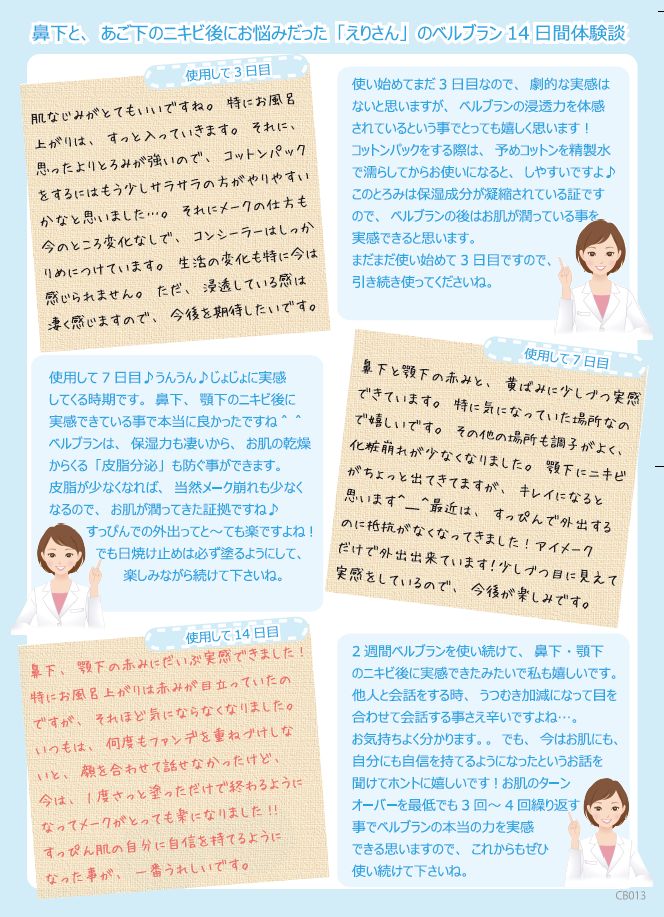 鼻下と、あご下のニキビ後にお悩みだった「えりさん」のベルブラン 14 日間体験談
使用して 3 日目
肌なじみがとてもいいですね。特にお風呂
上がりは、すっと入っていきます。それに、
思ったよりとろみが強いので、コットンパック
をするにはもう少しサラサラの方がやりやすい
かなと思いました…。それにメークの仕方も
今のところ変化なしで、コンシーラーはしっか
りめにつけています。生活の変化も特に今は
感じられません。ただ、浸透している感は
凄く感じますので、今後を期待したいです。
使い始めてまだ 3 日目なので、劇的な実感は
ないと思いますが、ベルブランの浸透力を体感
されているという事でとっても嬉しく思います！
コットンパックをする際は、予めコットンを精製水
で濡らしてからお使いになると、しやすいですよ♪
このとろみは保湿成分が凝縮されている証です
ので、ベルブランの後はお肌が潤っている事を
実感できると思います。
まだまだ使い始めて 3 日目ですので、
引き続き使ってくださいね。
使用して 7 日目
鼻下と顎下の赤みと、黄ばみに少しづつ実感
できています。特に気になっていた場所なの
で嬉しいです。その他の場所も調子がよく、
化粧崩れが少なくなりました。顎下にニキビ
がちょっと出てきてますが、キレイになると
思います^__^最近は、すっぴんで外出する
のに抵抗がなくなってきました！アイメーク
だけで外出出来ています!少しづつ目に見えて
実感をしているので、今後が楽しみです。
使用して 7 日目♪うんうん♪じょじょに実感
してくる時期です。鼻下、顎下のニキビ後に
実感できている事で本当に良かったですね＾＾
ベルブランは、保湿力も凄いから、お肌の乾燥
からくる「皮脂分泌」も防ぐ事ができます。
皮脂が少なくなれば、当然メーク崩れも少なく
なるので、お肌が潤ってきた証拠ですね♪
すっぴんでの外出ってと～ても楽ですよね！
でも日焼け止めは必ず塗るようにして、
楽しみながら続けて下さいね。
使用して 14 日目
鼻下、顎下の赤みにだいぶ実感できました！
特にお風呂上がりは赤みが目立っていたの
ですが、それほど気にならなくなりました。
いつもは、何度もファンデを重ねづけしな
いと、顔を合わせて話せなかったけど、
今は、1度さっと塗っただけで終わるように
なってメークがとっても楽になりました!!
すっぴん肌の自分に自信を持てるように
なった事が、一番うれしいです。
2 週間ベルブランを使い続けて、鼻下・顎下
のニキビ後に実感できたみたいで私も嬉しいです。
他人と会話をする時、うつむき加減になって目を
合わせて会話する事さえ辛いですよね…。
お気持ちよく分かります。。でも、今はお肌にも、
自分にも自信を持てるようになったというお話を
聞けてホントに嬉しいです！お肌のターン
オーバーを最低でも 3 回～ 4 回繰り返す
事でベルブランの本当の力を実感
できる思いますので、これからもぜひ
使い続けて下さいね。
CB013